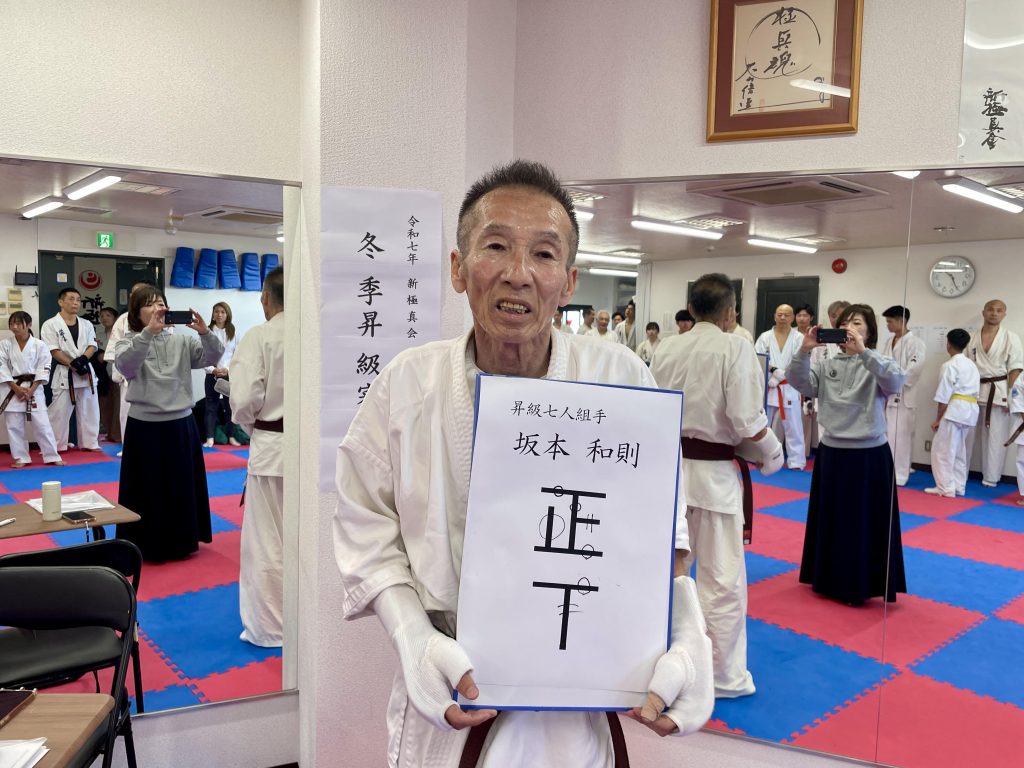 極真魂
大山倍達
新極真会
令和七年 新極真会
冬季昇級
昇級七人組手
坂本 和則
正
丅